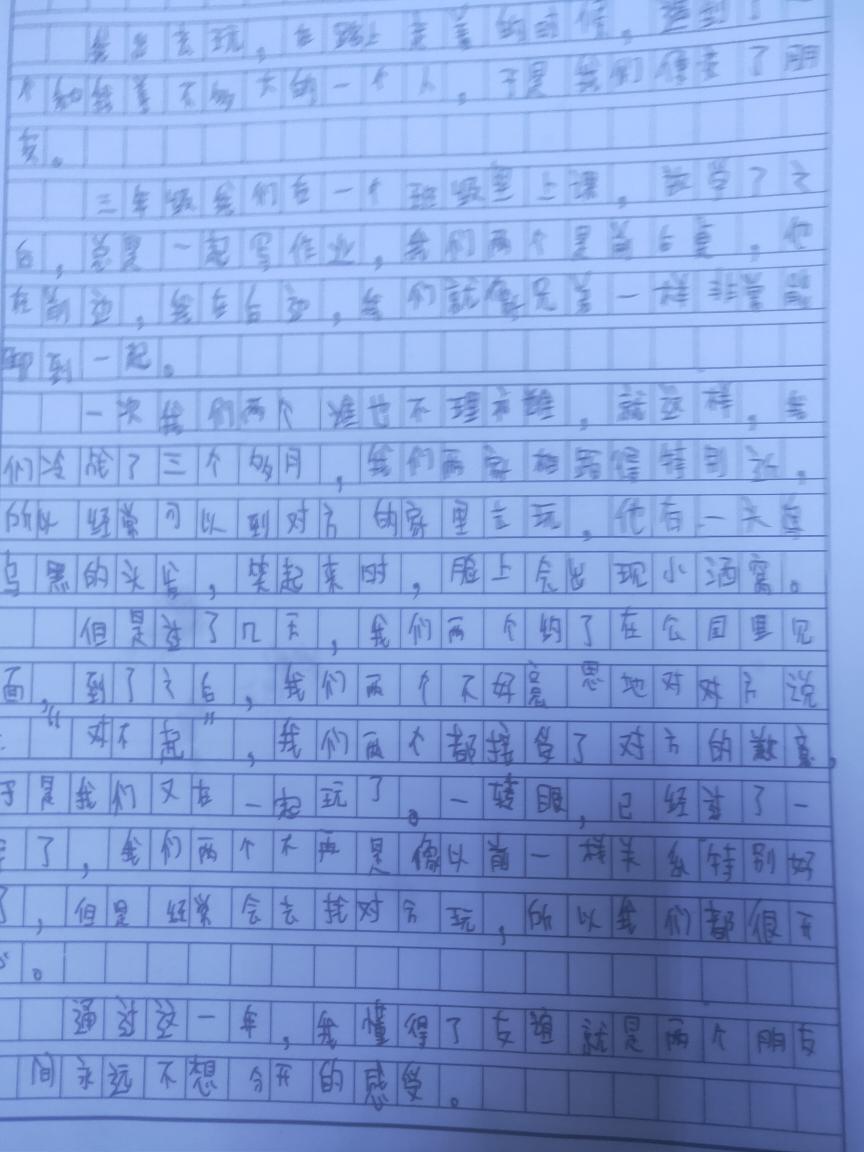 我出去玩，在路上走着的时候，遇到了
个和我差不多大的一个人，于是我们便成了朋
友。
三年级我们在一个班级里上课，放学了之
后，总是一起写作业，我们两个是前后桌，他
在前边，我在后边，我们就像兄弟一样非常能
聊到一起。
一次我们两个谁也不理和谁，就这样，我
们冷战了三个多月，我们两家相距得特别近，
所以经常可以到对方的家里去玩，他有一头
乌黑的头发，笑起来时，脸上会出现小酒窝。
但是过了几天，我们两个约了在公园里见
面，到了之后，我们两个不好意思地对对方说
：“对不起”，我们两个都接受了对方的歉意，
于是我们又在一起玩了。一转眼，已经过了一
年了，我们两个不再是像以前一样关系特别好
了，但是经常会去找对方玩，所以我们都很开
心。
通过这一年，我懂得了友谊就是两个朋友
间永远不想分开的感受。